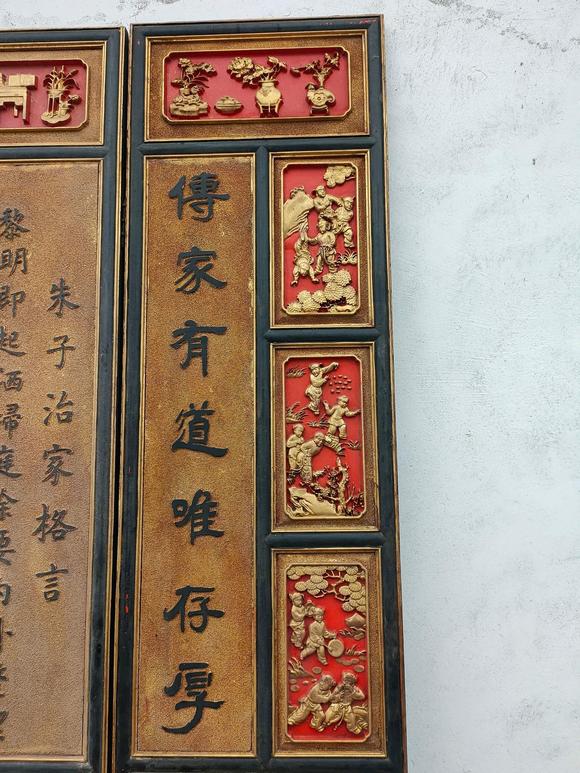 傳家有道唯存厚
朱子治家格言
黎明即起洒掃庭除要内外